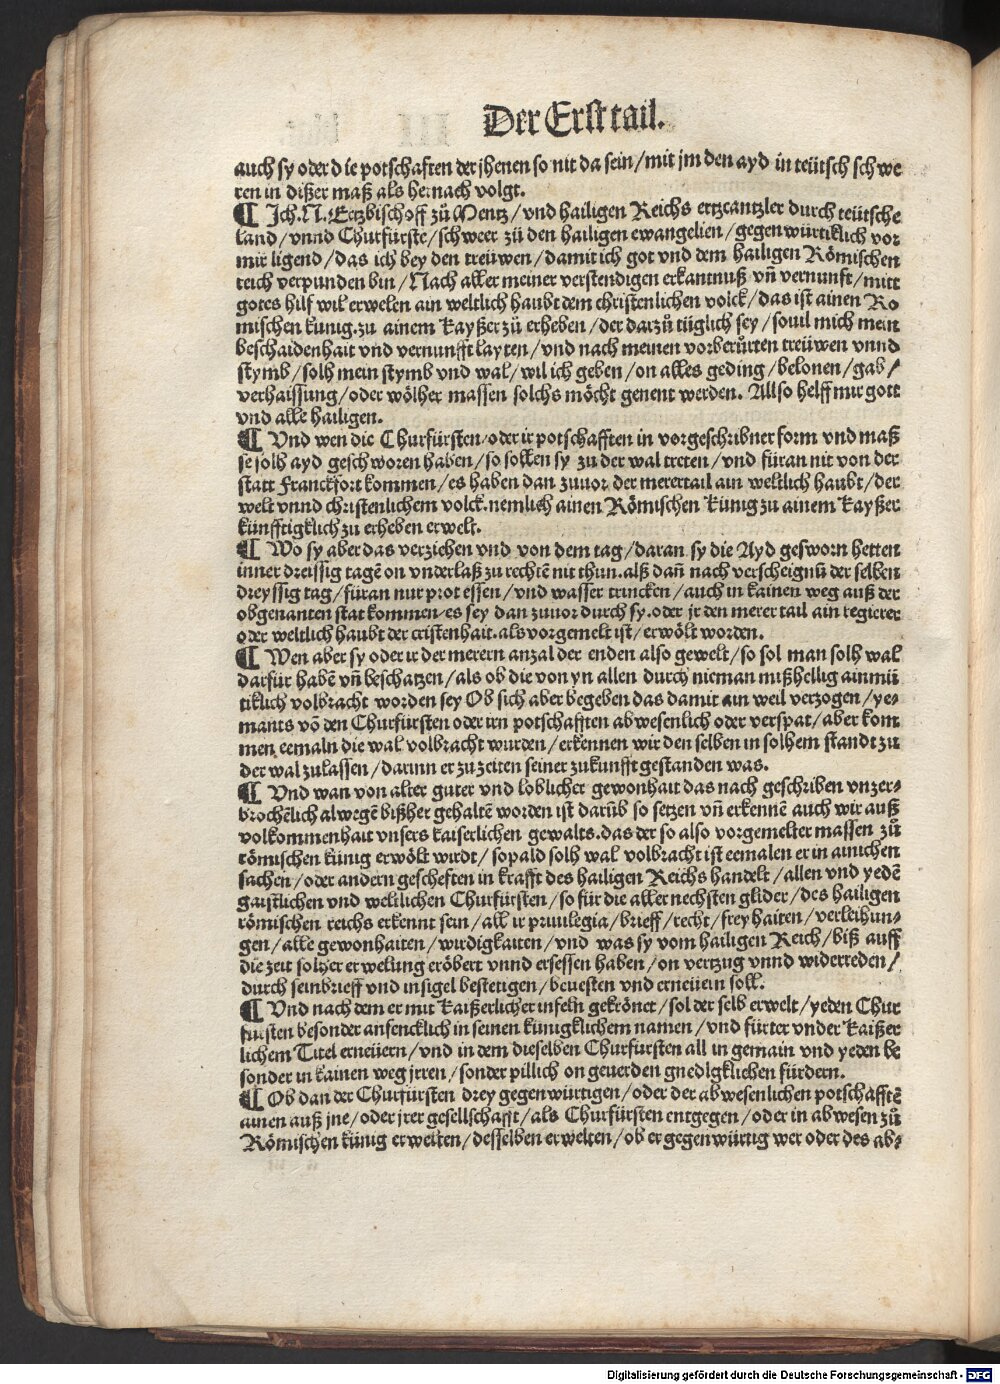 Der Erst tail.
auch sy oder die potschaften der jhenen so nit da sein / mit jm den ayd in teütsch schwe
ren in dißer maß als hernach volgt.
¶ Ich. N. Ertzbischoff zů Mentz / vnd hailigen Reichs ertzcantzler durch teütsche
land / vnnd Churfürste / schweer zů den hailigen ewangelien / gegenwürtiklich vor
mir ligend / das ich bey den treüwen / damit ich got vnd dem hailigen Römischen
reich verpunden bin / Nach aller meiner verstendigen erkantnuß vñ vernunft / mitt
gotes hilf wil erwelen ain weltlich haubt dem christenlichen volck / das ist ainen Rö
mischen kunig. zu ainem Kayßer zů erheben / der darzů tüglich sey / souil mich mein
beschaidenhait vnd vernunfft layten / vnd nach meinen vorberůrten treüwen vnnd
stymb / solh mein stymb vnd wal / wil ich geben / on alles geding / belonen / gab /
verhaissung / oder wölher massen solchs möcht genent werden. Allso helff mir gott
vnd alle hailigen.
¶ Vnd wen die Churfürsten / oder ir potschafften in vorgeschribner form vnd maß
se solh ayd geschworen haben / so sollen sy zu der wal treten / vnd füran nit von der
statt Franckfort kommen / es haben dan zuuor der merertail ain weltlich haubt / der
welt vnnd christenlichem volck. nemlich ainen Römischen Künig zu ainem Kayßer
künfftigklich zu erheben erwelt.
¶ Wo sy aber das verziehen vnd von dem tag / daran sy die Ayd gesworn hetten
inner dreissig tagẽ on vnderlaß zu rechtẽ nit thun. alß dañ nach verscheignũ der selben
dreyssig tag / füran nur prot essen / vnd wasser trincken / auch in kainen weg auß der
obgenanten stat kommen / es sey dan zuuor durch sy. oder jr den merer tail ain regierer
oder weltlich haubt der cristenhait. als vorgemelt ist / erwölt worden.
¶ Wen aber sy oder ir der merern anzal der enden also gewelt / so sol man solh wal
darfür habẽ vñ beschatzen / als ob die von yn allen durch nieman mißhellig ainmü
tiklich volbracht worden sey Ob sich aber begeben das damit ain weil verzogen / ye-
mants võ den Churfürsten oder irn potschafften abwesenlich oder verspat / aber kom
men eemaln die wal volbracht wurden / erkennen wir den selben in solhem standt zu
der wal zulassen / darinn er zu zeiten seiner zukunfft gestanden was.
¶ Vnd wan von alter guter vnd loblicher gewonhait das nach geschriben vnzer-
brochẽlich alwegẽ bißher gehaltẽ worden ist darũb so setzen vñ erkennẽ auch wir auß
volkommenhait vnsers kaiserlichen gewalts. das der so also vorgemelter massen zů
römischen künig erwölt wirdt / sopald solh wal volbracht ist eemalen er in ainichen
sachen / oder andern gescheften in krafft des hailigen Reichs handelt / allen vnd yedẽ
gaistlichen vnd weltlichen Churfürsten / so für die aller nechsten glider / des hailigen
römischen reichs erkennt sein / all ir priuilegia / brieff / recht / freyhaiten / verleihun-
gen / alle gewonhaiten / wirdigkaiten / vnd was sy vom hailigen Reich / biß auff
die zeit solher erwelung eröbert vnnd ersessen haben / on vertzug vnnd widerreden /
durch sein brieff vnd insigel bestetigen / beuesten vnd erneüern soll.
¶ Vnd nach dem er mit Kaißerlicher infeln gekrönet / sol der selb erwelt / yeden Chur
fürsten besonder anfencklich in seinen künigklichem namen / vnd fürter vnder Kaißer
lichem Titel erneüern / vnd in dem dieselben Churfursten all in gemain vnd yeden be
sonder in kainen weg jrren / sonder pillich on geuerden gnedigklichen fürdern.
¶ Ob dan der Churfürsten drey gegenwürtigen / oder der abwesenlichen potschafftẽ
ainen auß jne / oder jrer gesellschafft / als Churfürsten entgegen / oder in abwesen zů
Römischen künig erwelten / desselben erwelten / ob er gegenwürtig wer oder des ab-
Digitalisierung gefördert durch die Deutsche Forschungsgemeinschaft - DFG